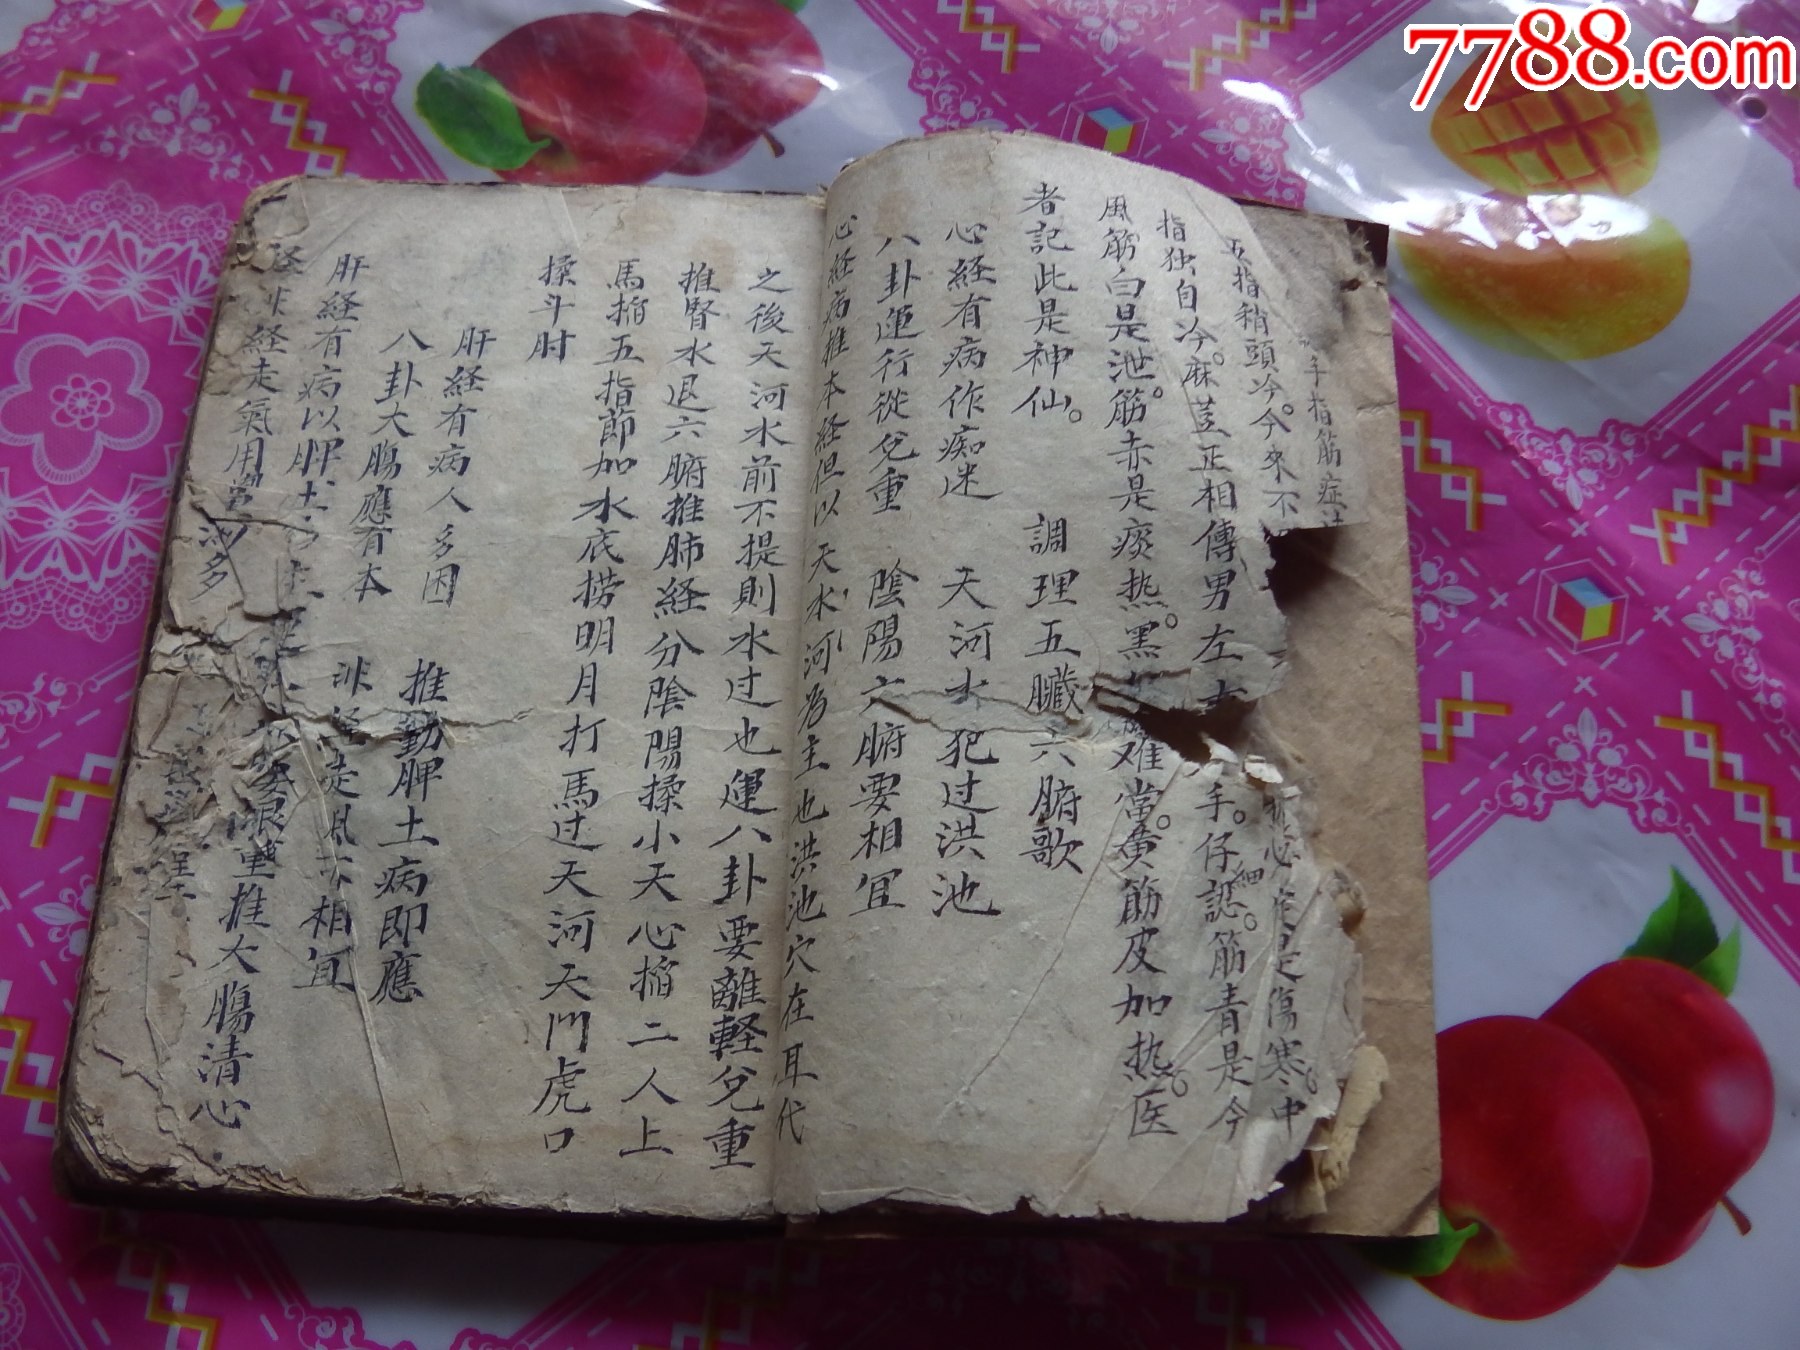 7788.com
手指筋症
五指稍頭冷。今來不
心 是傷寒。中
指独自冷。麻荳正相傳男左
手。仔細認。筋青是今
風筋白是泄筋赤是痰热。黑
难當。黄筋皮加热。医
者記此是神仙。 調理五臟六腑歌
心経有病作痴迷 天河水犯过洪池
八卦運行從兌重 陰陽六腑要相冝
心経病推本経但以天水河為主也洪池穴在耳代
之後天河水前不提則水过也運八卦要離輕兌重
推腎水退六腑推肺経分陰陽揉小天心搯二人上
馬搯五指節加水底捞明月打馬过天河天門虎口
揉斗肘
肝経有病人多困 推動脾土病即應
八卦大腸應有本 走風 相冝
肝経有病以脾土 重推大腸清心
経走氣用